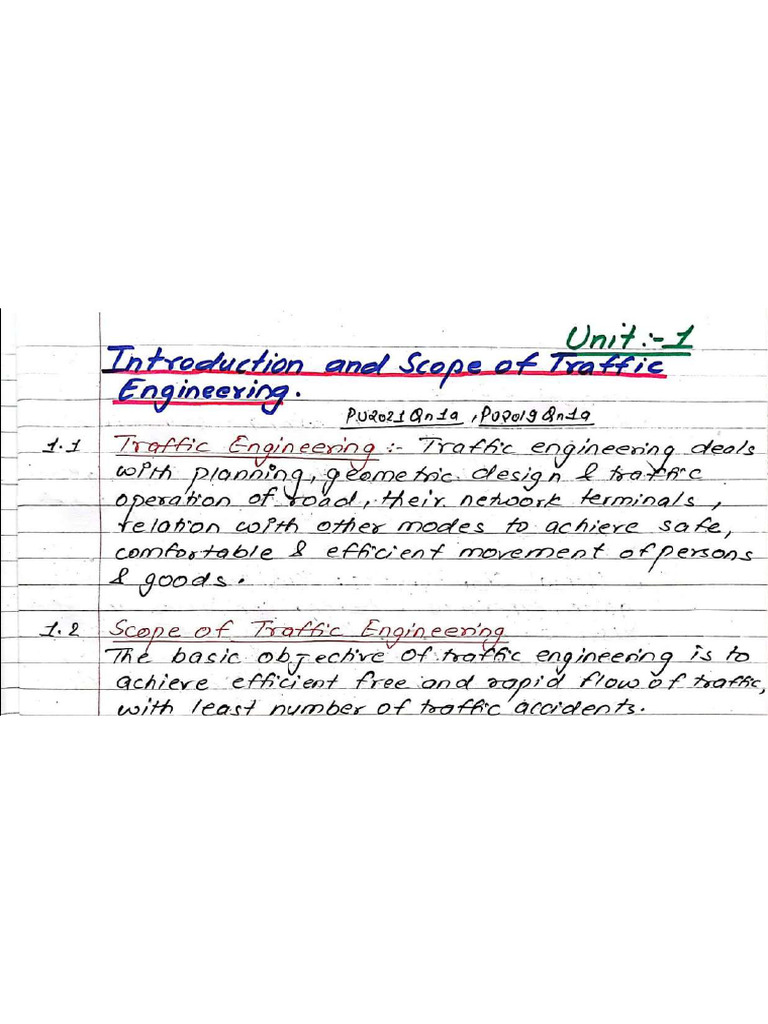 Unit :- 1
Introduction and Scope of Traffic
Engineering.
PU2021 Qn1a , PU2019 Qn1a
1.1 Traffic Engineering :- Traffic engineering deals
with planning, geometric design & traffic
operation of road, their network terminals ,
relation with other modes to achieve safe,
comfortable & efficient movement of persons
& goods.
1.2 Scope of Traffic Engineering
The basic objective of traffic engineering is to
achieve efficient free and rapid flow of traffic,
with least number of traffic accidents.